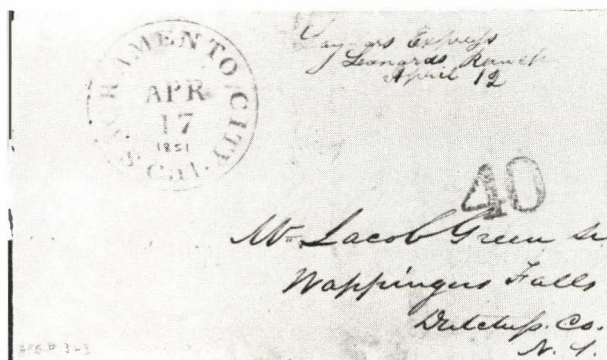 SACRAMENTO CITY
APR
17
1851
Cal.
Express
Leonards Ranch
April 12
40
Mr. Jacob Green
Wappingers Falls
Dutchess. Co.
N. Y.